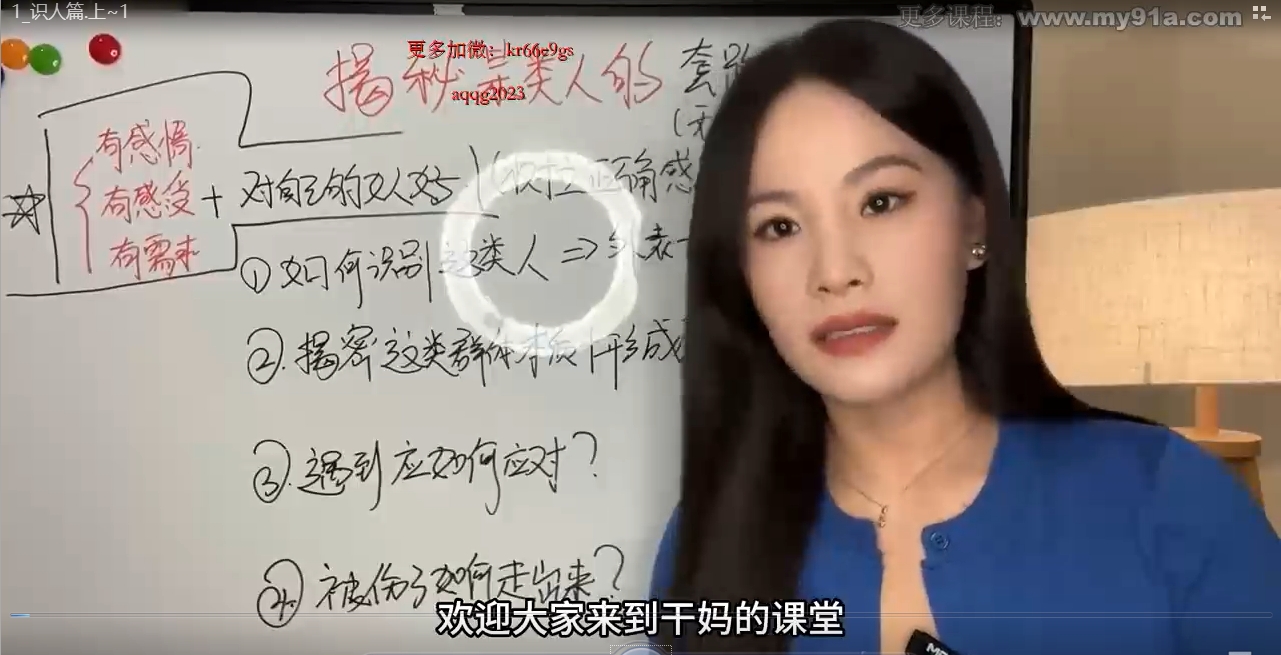 1_识人篇.上~1
更多课程：www.my91a.com
更多加微：kr66e9gs
aqqg2023
揭秘某类人的套路
有感情
有感受 + 对自己的女人好
有需求
正确感
① 如何识别这类人 ⇒ 列表
②. 揭密这类群体本质 形成
③. 遇到应如何应对？
④. 被伤了如何走出来？
欢迎大家来到干妈的课堂